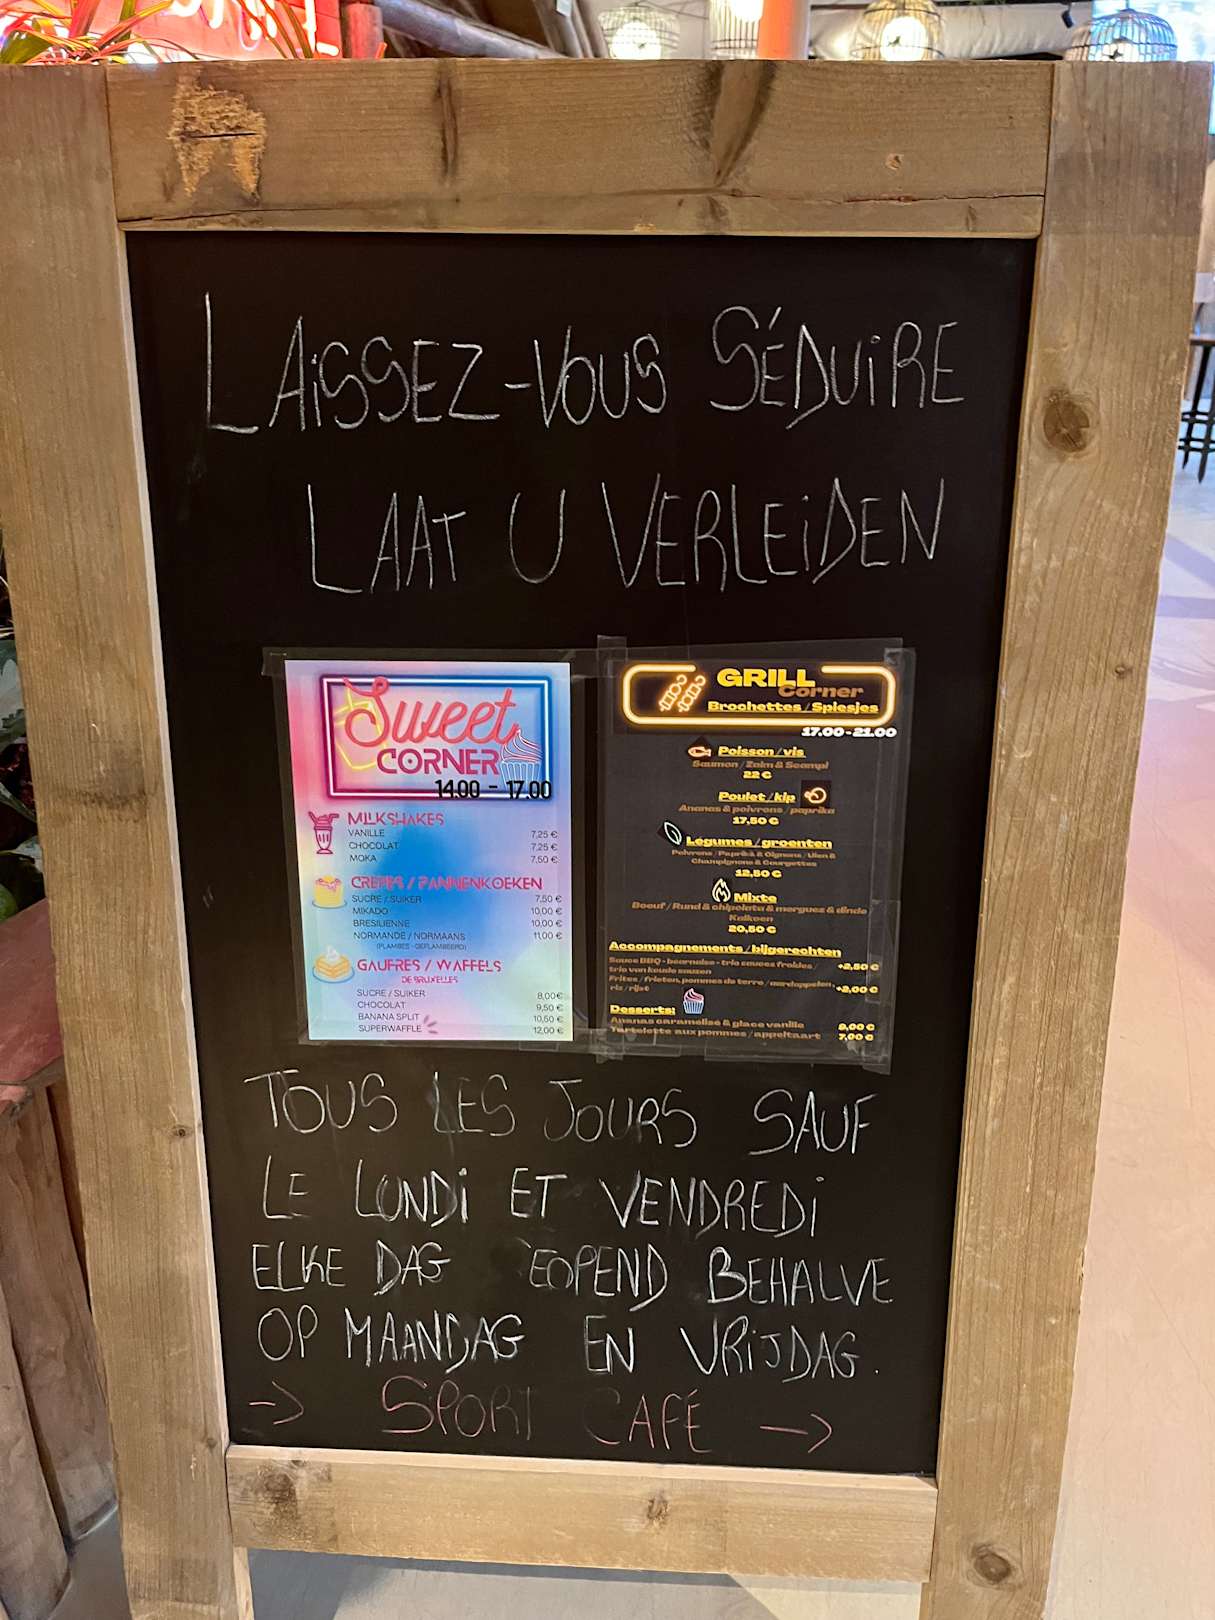 LAiSSEZ-VOUS SÉDUiRE
LAAT U VERLEiDEN
Sweet
CORNER
14.00 - 17.00
MILKSHAKES
VANILLE 7,25 €
CHOCOLAT 7,25 €
MOKA 7,50 €
CREPES / PANNENKOEKEN
SUCRE / SUIKER 7,50 €
MIKADO 10,00 €
BRESILIENNE 10,00 €
NORMANDE / NORMAANS 11,00 €
(FLAMBES - GEFLAMBEERD)
GAUFRES / WAFFELS
DE BRUXELLES
SUCRE / SUIKER 8,00 €
CHOCOLAT 9,50 €
BANANA SPLIT 10,50 €
SUPERWAFFLE 12,00 €
GRILL
Corner
Brochettes / Spiesjes
17.00 - 21.00
Poisson / vis
Saumon / Zalm & Scampi
22 €
Poulet / kip
Ananas & poivrons / paprika
17,50 €
Légumes / groenten
Poivrons / Paprika & Oignons / Uien &
Champignons & Courgettes
12,50 €
Mixte
Boeuf / Rund & chipolata & merguez & dinde
Kalkoen
20,50 €
Accompagnements / bijgerechten
Sauce BBQ - bearnaise - trio sauces froides / +2,50 €
trio van koude sauzen
Frites / frieten, pommes de terre / aardappelen, +2,00 €
riz / rijst
Desserts:
Ananas caramélisé & glace vanille 9,00 €
Tartelette aux pommes / appeltaart 7,00 €
TOUS LES JOURS SAUF
LE LUNDi ET VENDREDi
ELKE DAG EOPEND BEHALVE
OP MAANDAG EN VRiJDAG.
-> SPORT CAFÉ ->